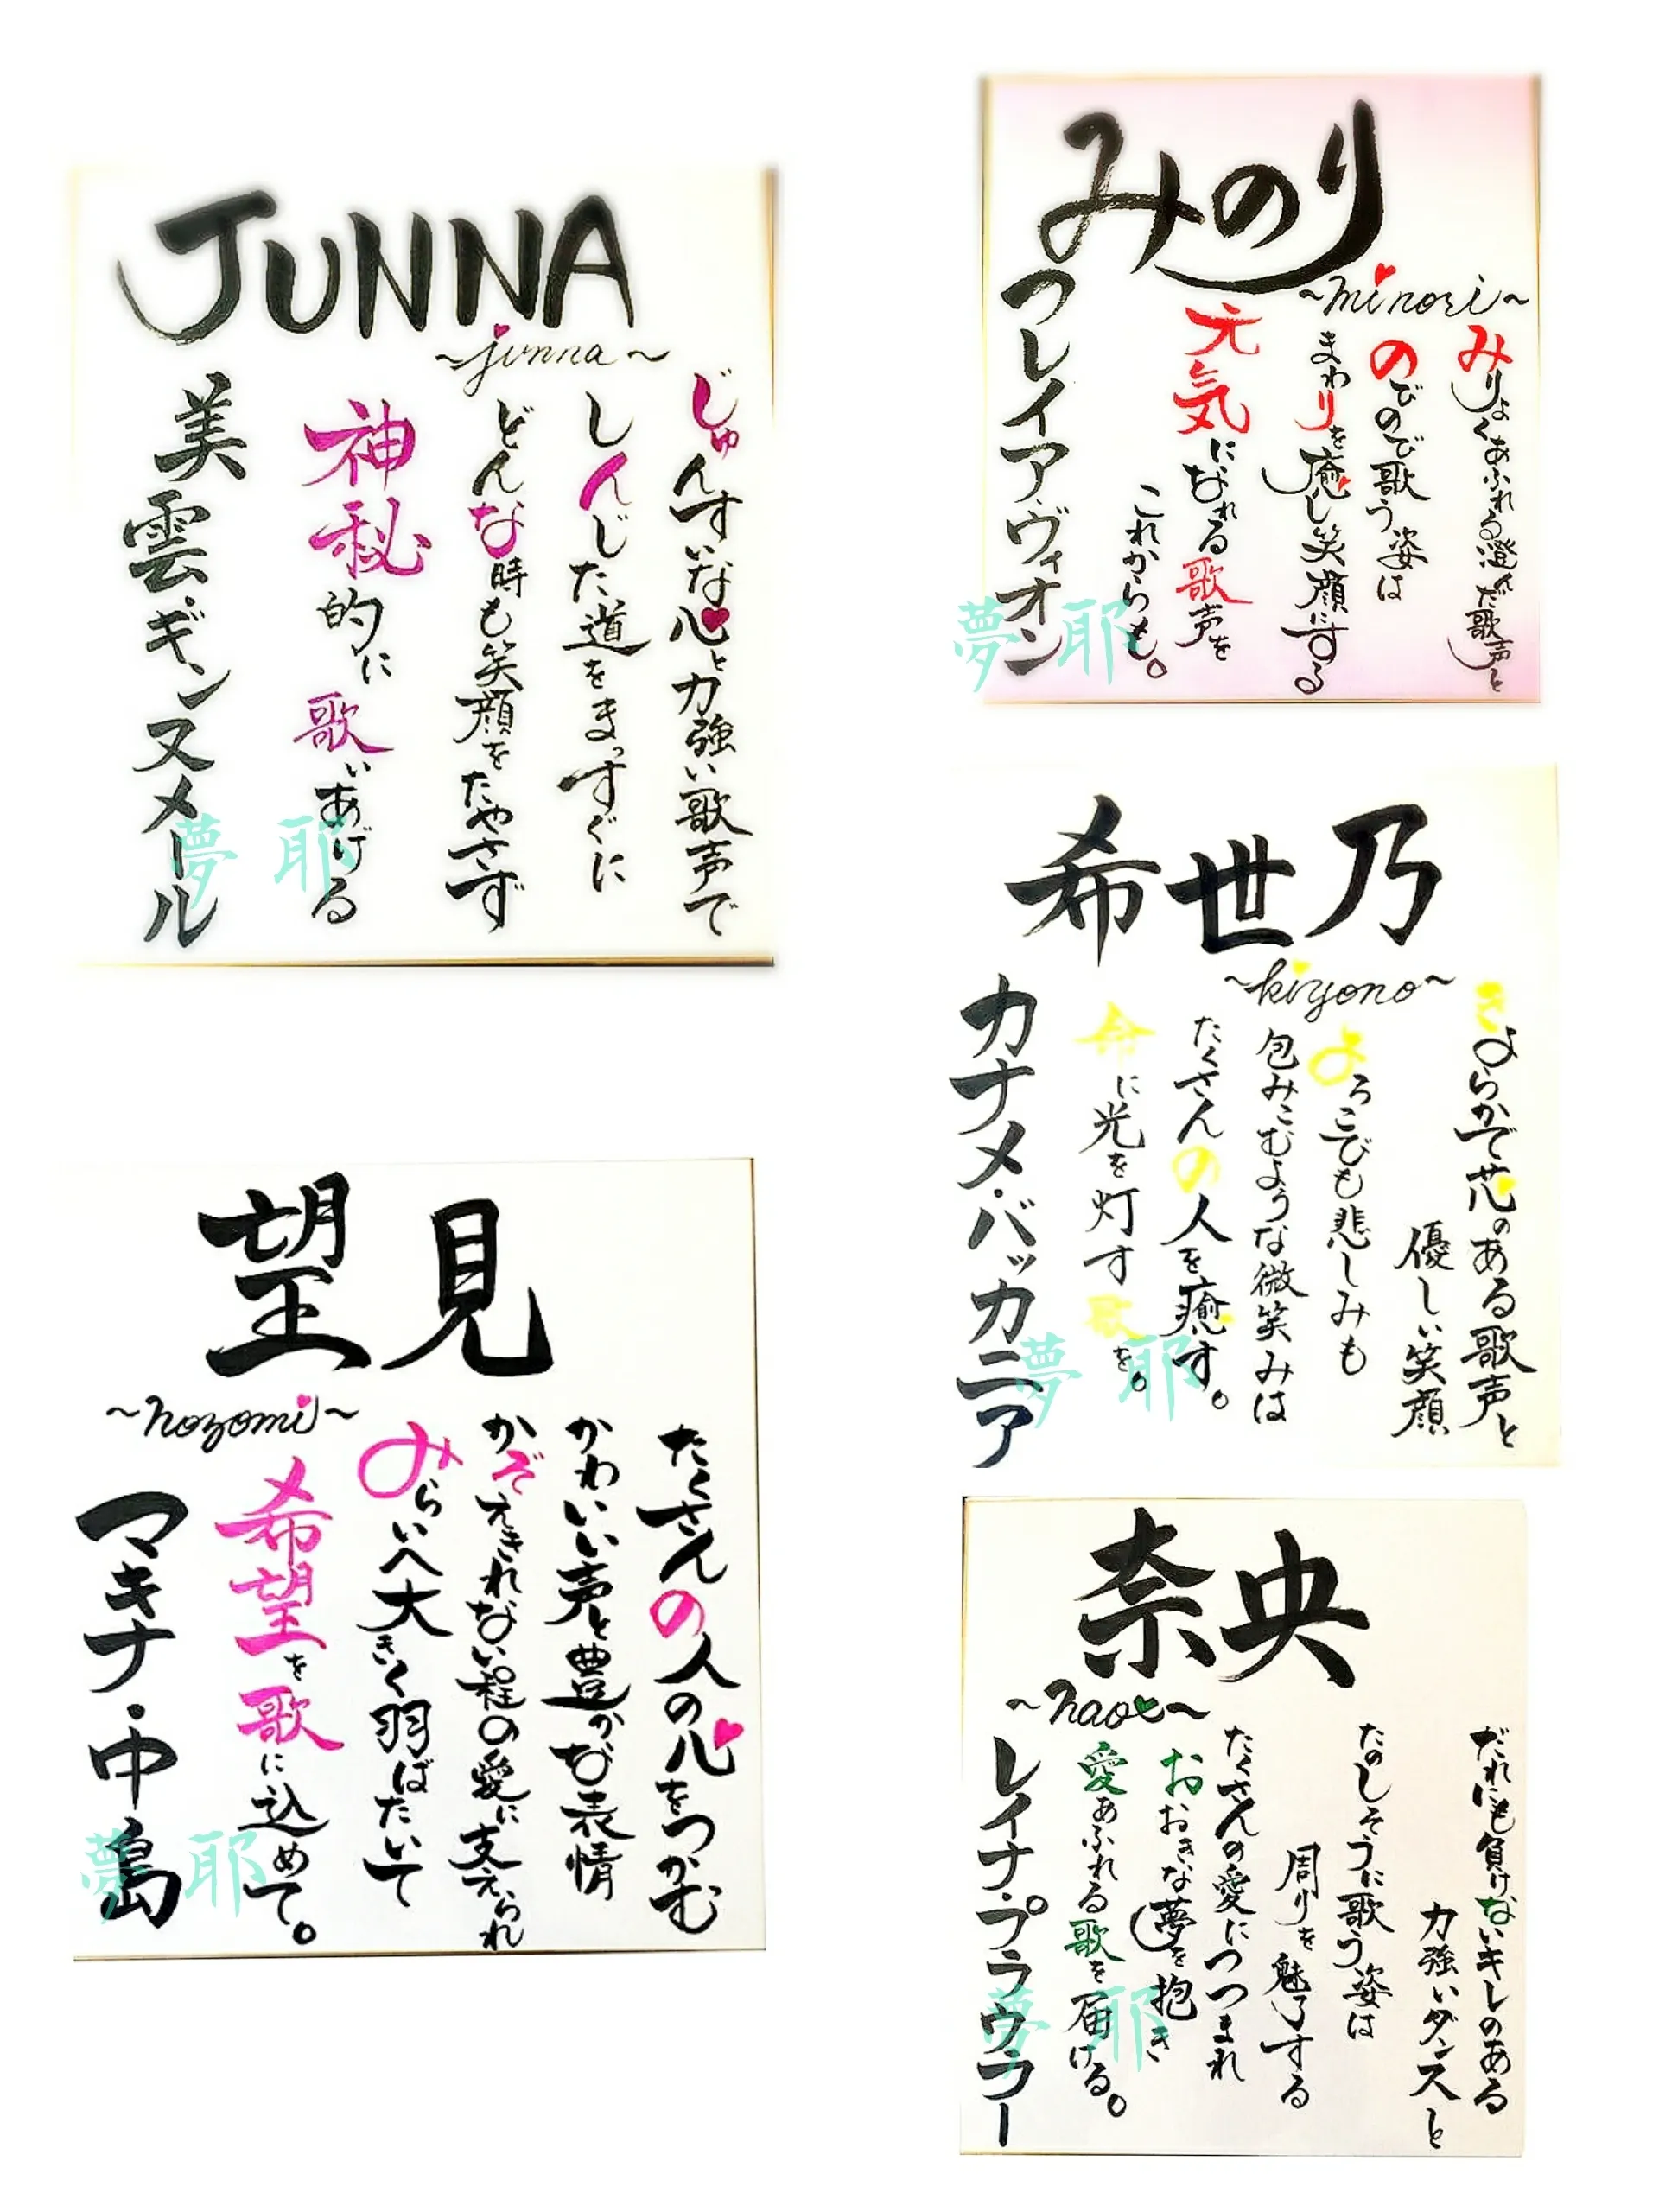 JUNNA
~junna~
じゅんすいな心と力強い歌声で
しんじた道をまっすぐに
どんな時も笑顔をたやさず
神秘的に歌いあげる
美雲・ギンヌメール
夢耶
みのり
~minori~
みりょくあふれる澄んだ歌声と
のびのび歌う姿は
まわりを癒し笑顔にする
元気になれる歌声を
これからも。
フレイア・ヴィオン
夢耶
希世乃
~kiyono~
きよらかで芯のある歌声と
優しい笑顔
よろこびも悲しみも
包みこむような微笑みは
たくさんの人を癒す。
命に光を灯す歌を。
カナメ・バッカニア
夢耶
望見
~nozomi~
たくさんの人の心をつかむ
かわいい声と豊かな表情
かぞえきれない程の愛に支えられ
みらいへ大きく羽ばたいて
希望を歌に込めて。
マキナ・中島
夢耶
奈央
~nao~
だれにも負けないキレのある
力強いダンスと
たのしそうに歌う姿は
周りを魅了する
たくさんの愛につつまれ
おおきな夢を抱き
愛あふれる歌を届ける。
レイナ・プラウラー
夢耶